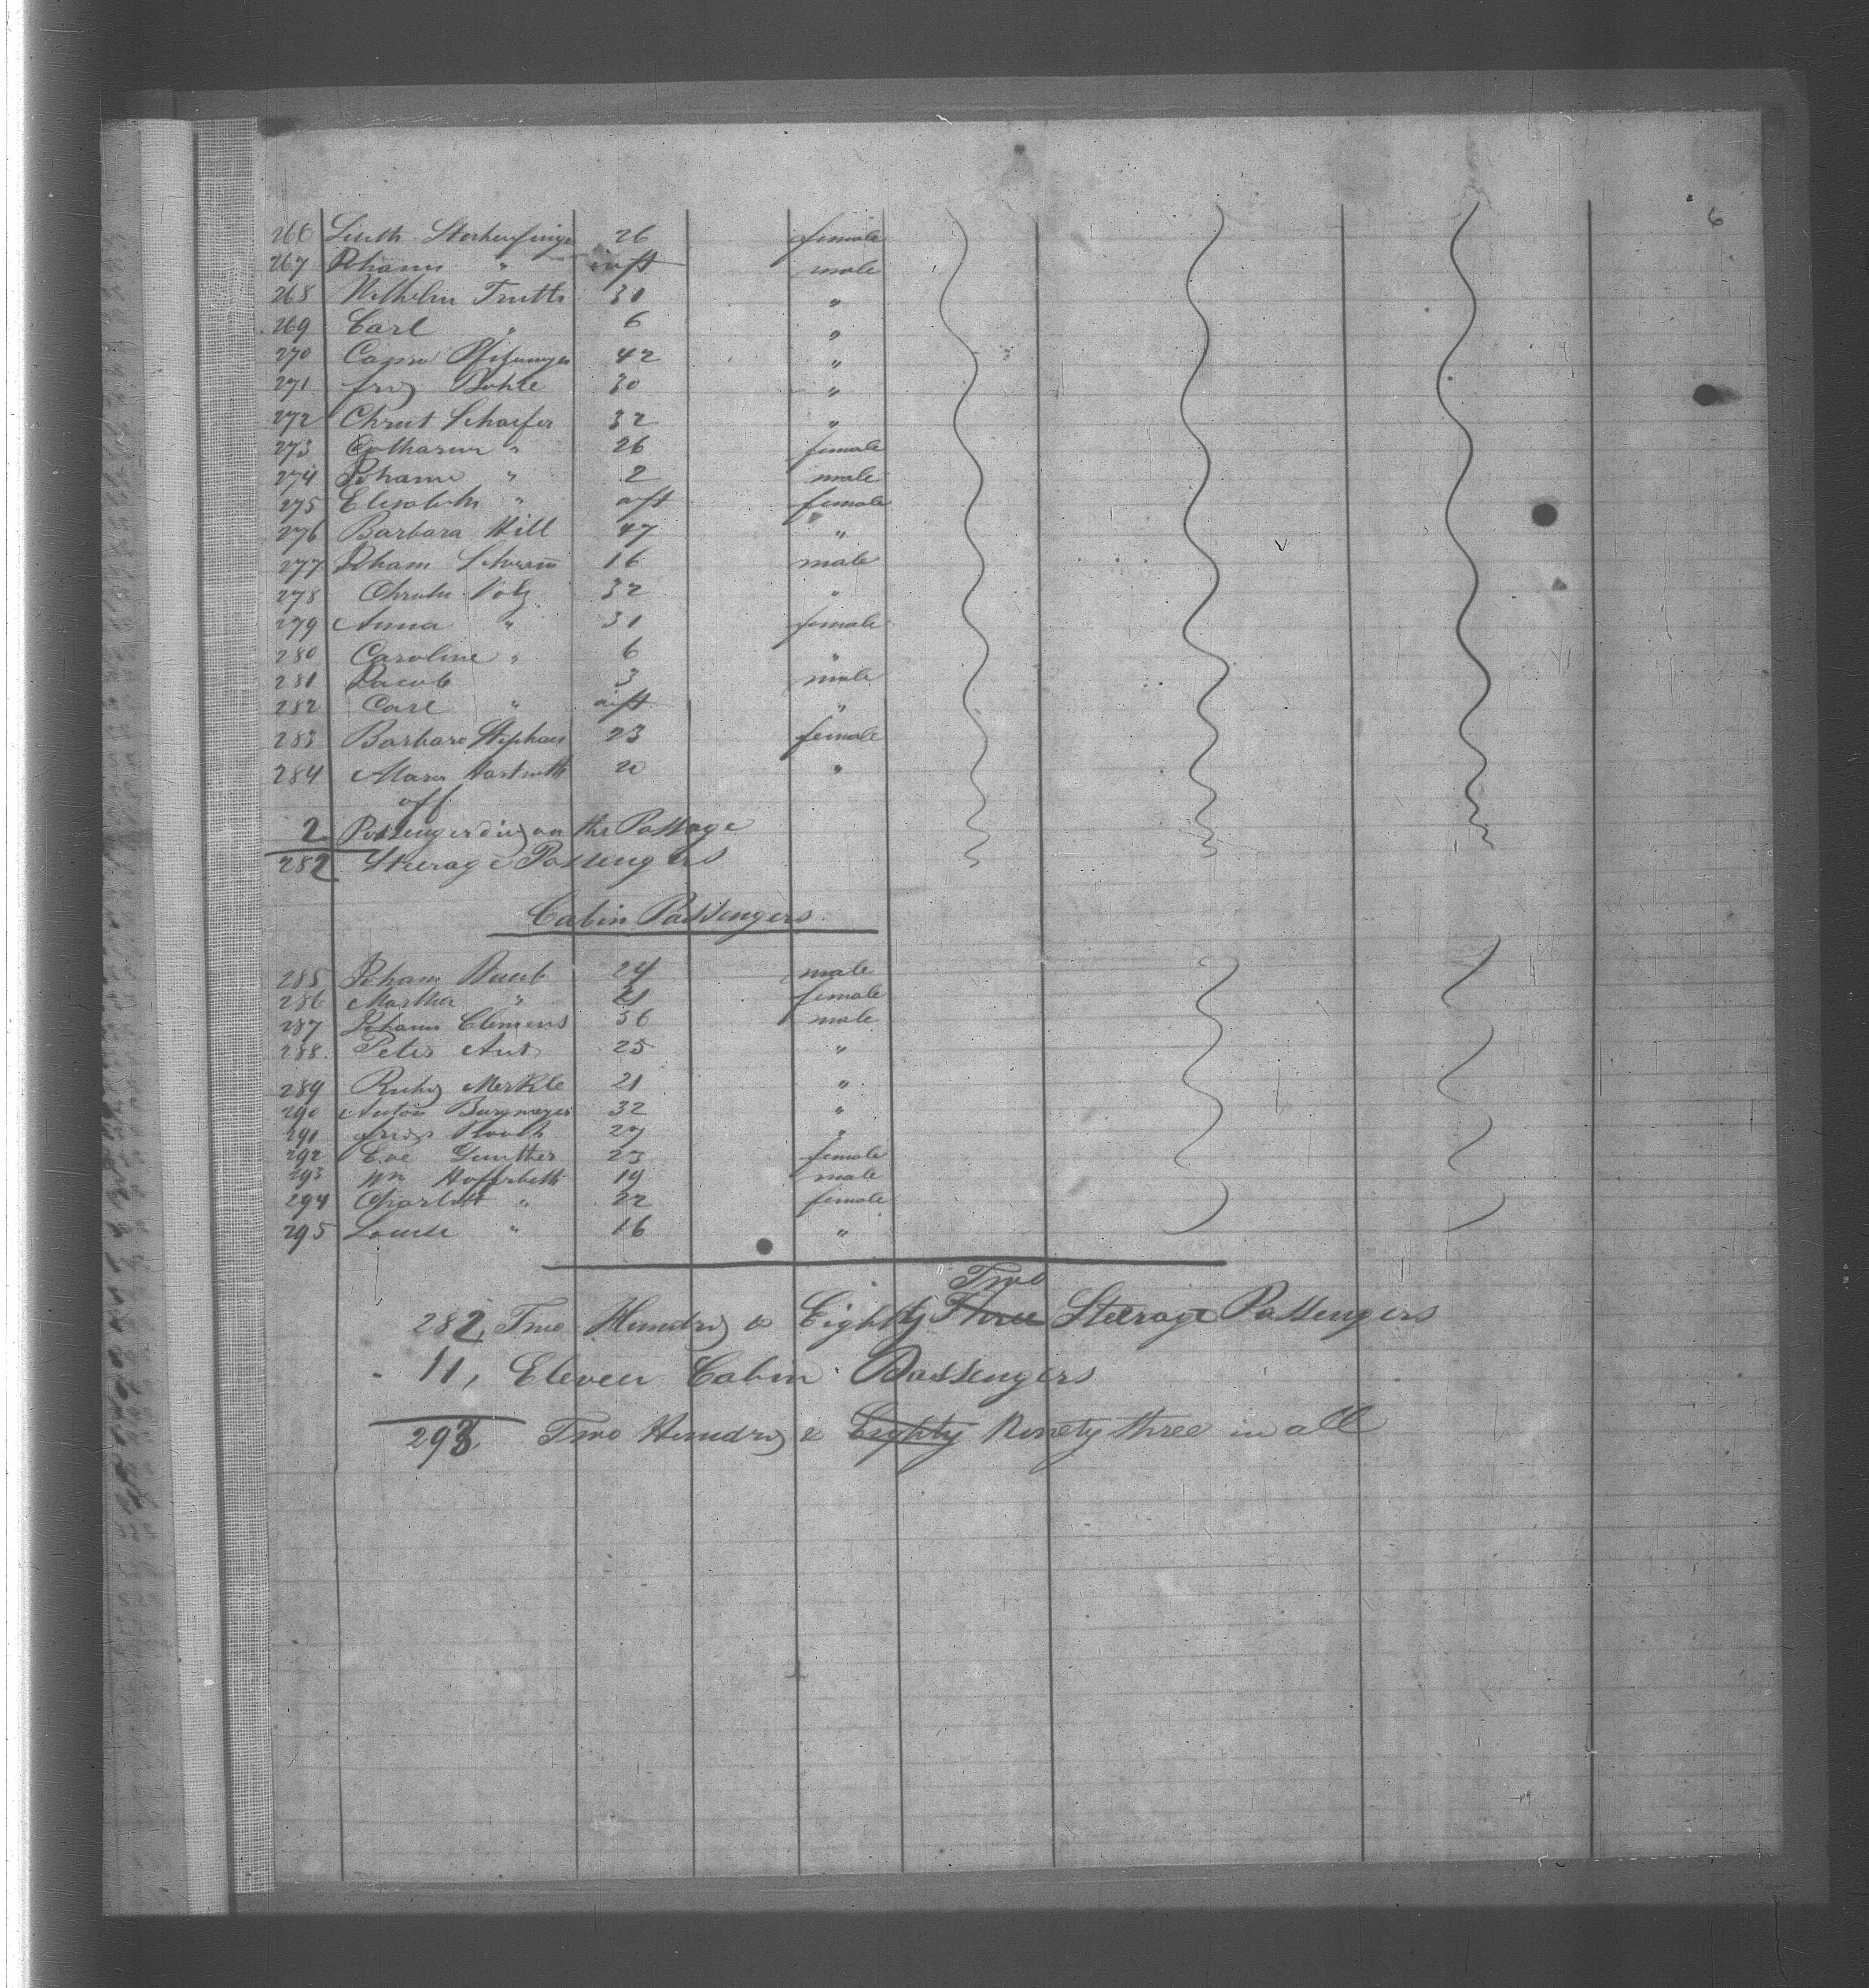 6
266 Storkenfinger 26 female
267 Johann " inft male
268 Wilhelm Truth 31 "
269 Carl " 6 "
270 42 "
271 Fried Bohle 30 "
272 Christ Schaefer 32 "
273 Catharine " 26 female
274 Johann " 2 male
275 Elisabeth " inft female
276 Barbara Hill 47 "
277 Johann Schramm 16 male
278 Volz 32 "
279 Anna " 31 female
280 Caroline " 6 "
281 Jacob 3 male
282 Carl " inft "
283 Barbara Stephan 23 female
284 Maria Hartnoth 20 "
off
2 Passenger died on the Passage
282 Steerage Passengers
Cabin Passengers
285 Johann 24 male
286 Martha " 21 female
287 Johann Clemens 36 male
288. Peter 25 "
289 Merkle 21 "
290 Anton Burgmeyer 32 "
291 27 "
292 Eve Gunther 23 female
293 Wm Hofferbeth 19 male
294 Charlott " 22 female
295 Louise " 16 "
Two
282, Two Hundred & Eighty Three Steerage Passengers
" 11, Eleven Cabin Passengers
293 Two Hundred & Eighty Ninety three in all